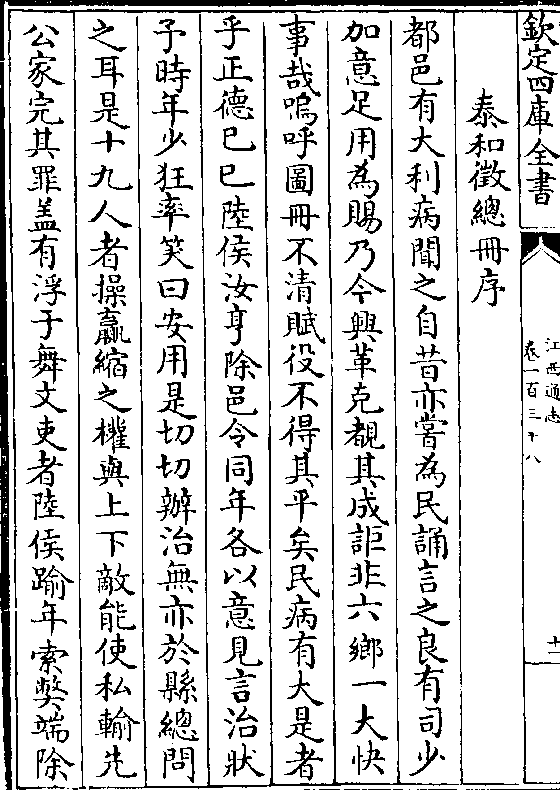 欽定四庫全書
江西通志
卷一百三十八
十二
泰和徵總冊序
都邑有大利病聞之自昔亦嘗為民誦言之良有司少
加意足用為賜乃今興革克覩其成詎非六鄉一大快
事哉嗚呼圖冊不清賦役不得其平矣民病有大是者
乎正德巳巳陸侯汝亨除邑令同年各以意見言治狀
予時年少狂率笑曰安用是切切辦治無亦於縣總問
之耳是十九人者操贏縮之權與上下敵能使私輸先
公家完其罪盖有浮于舞文吏者陸侯踰年索弊端除